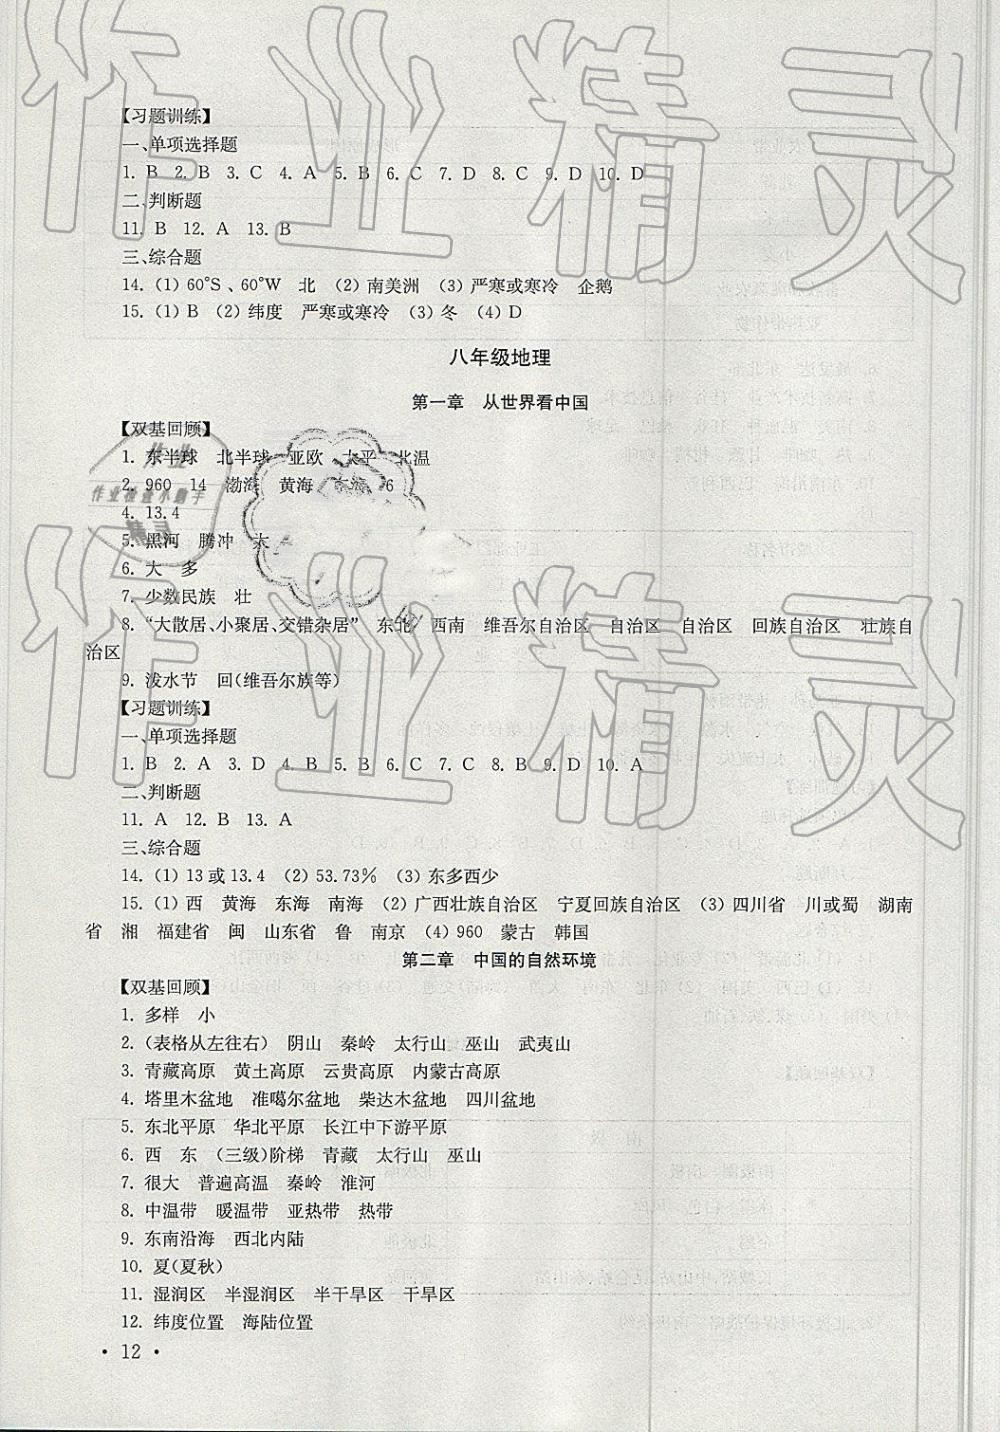 【习题训练】
一、单项选择题
1. B 2. B 3. C 4. A 5. B 6. C 7. D 8. C 9. D 10. D
二、判断题
11. B 12. A 13. B
三、综合题
14. (1) 60°S、60°W 北 (2) 南美洲 (3) 严寒或寒冷 企鹅
15. (1) B (2) 纬度 严寒或寒冷 (3) 冬 (4) D
八年级地理
第一章 从世界看中国
【双基回顾】
1. 东半球 北半球 亚欧 太平 北温
2. 960 14 渤海 黄海 东海 6
4. 13.4
5. 黑河 腾冲 大
6. 大 多
7. 少数民族 壮
8. “大散居、小聚居、交错杂居” 东北 西南 维吾尔自治区 自治区 自治区 回族自治区 壮族自
治区
9. 泼水节 回(维吾尔族等)
【习题训练】
一、单项选择题
1. B 2. A 3. D 4. B 5. B 6. C 7. C 8. B 9. D 10. A
二、判断题
11. A 12. B 13. A
三、综合题
14. (1) 13 或 13.4 (2) 53.73% (3) 东多西少
15. (1) 西 黄海 东海 南海 (2) 广西壮族自治区 宁夏回族自治区 (3) 四川省 川或蜀 湖南
省 湘 福建省 闽 山东省 鲁 南京 (4) 960 蒙古 韩国
第二章 中国的自然环境
【双基回顾】
1. 多样 小
2. (表格从左往右) 阴山 秦岭 太行山 巫山 武夷山
3. 青藏高原 黄土高原 云贵高原 内蒙古高原
4. 塔里木盆地 准噶尔盆地 柴达木盆地 四川盆地
5. 东北平原 华北平原 长江中下游平原
6. 西 东 (三级)阶梯 青藏 太行山 巫山
7. 很大 普遍高温 秦岭 淮河
8. 中温带 暖温带 亚热带 热带
9. 东南沿海 西北内陆
10. 夏(夏秋)
11. 湿润区 半湿润区 半干旱区 干旱区
12. 纬度位置 海陆位置
• 12 •
作业精灵
作业
作业检查小助手
精灵
作业精灵